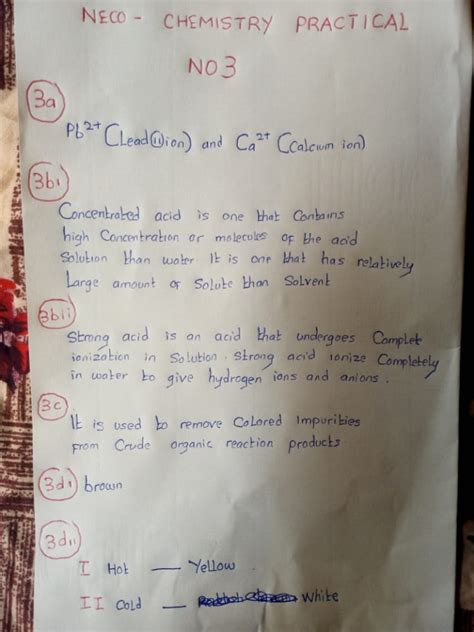 NECO - CHEMISTRY PRACTICAL
NO3
3a
Pb²⁺ (Lead(II)ion) and Ca²⁺ (Calcium ion)
3bi
Concentrated acid is one that Contains
high Concentration or molecules of the acid
Solution than water. It is one that has relatively
Large amount of Solute than Solvent
3bii
Strong acid is an acid that undergoes Complet
ionization in Solution. Strong acid ionize Completely
in water to give hydrogen ions and anions.
3c
It is used to remove Colored Impurities
from Crude organic reaction products
3di brown
3dii
I Hot — Yellow.
II Cold — White